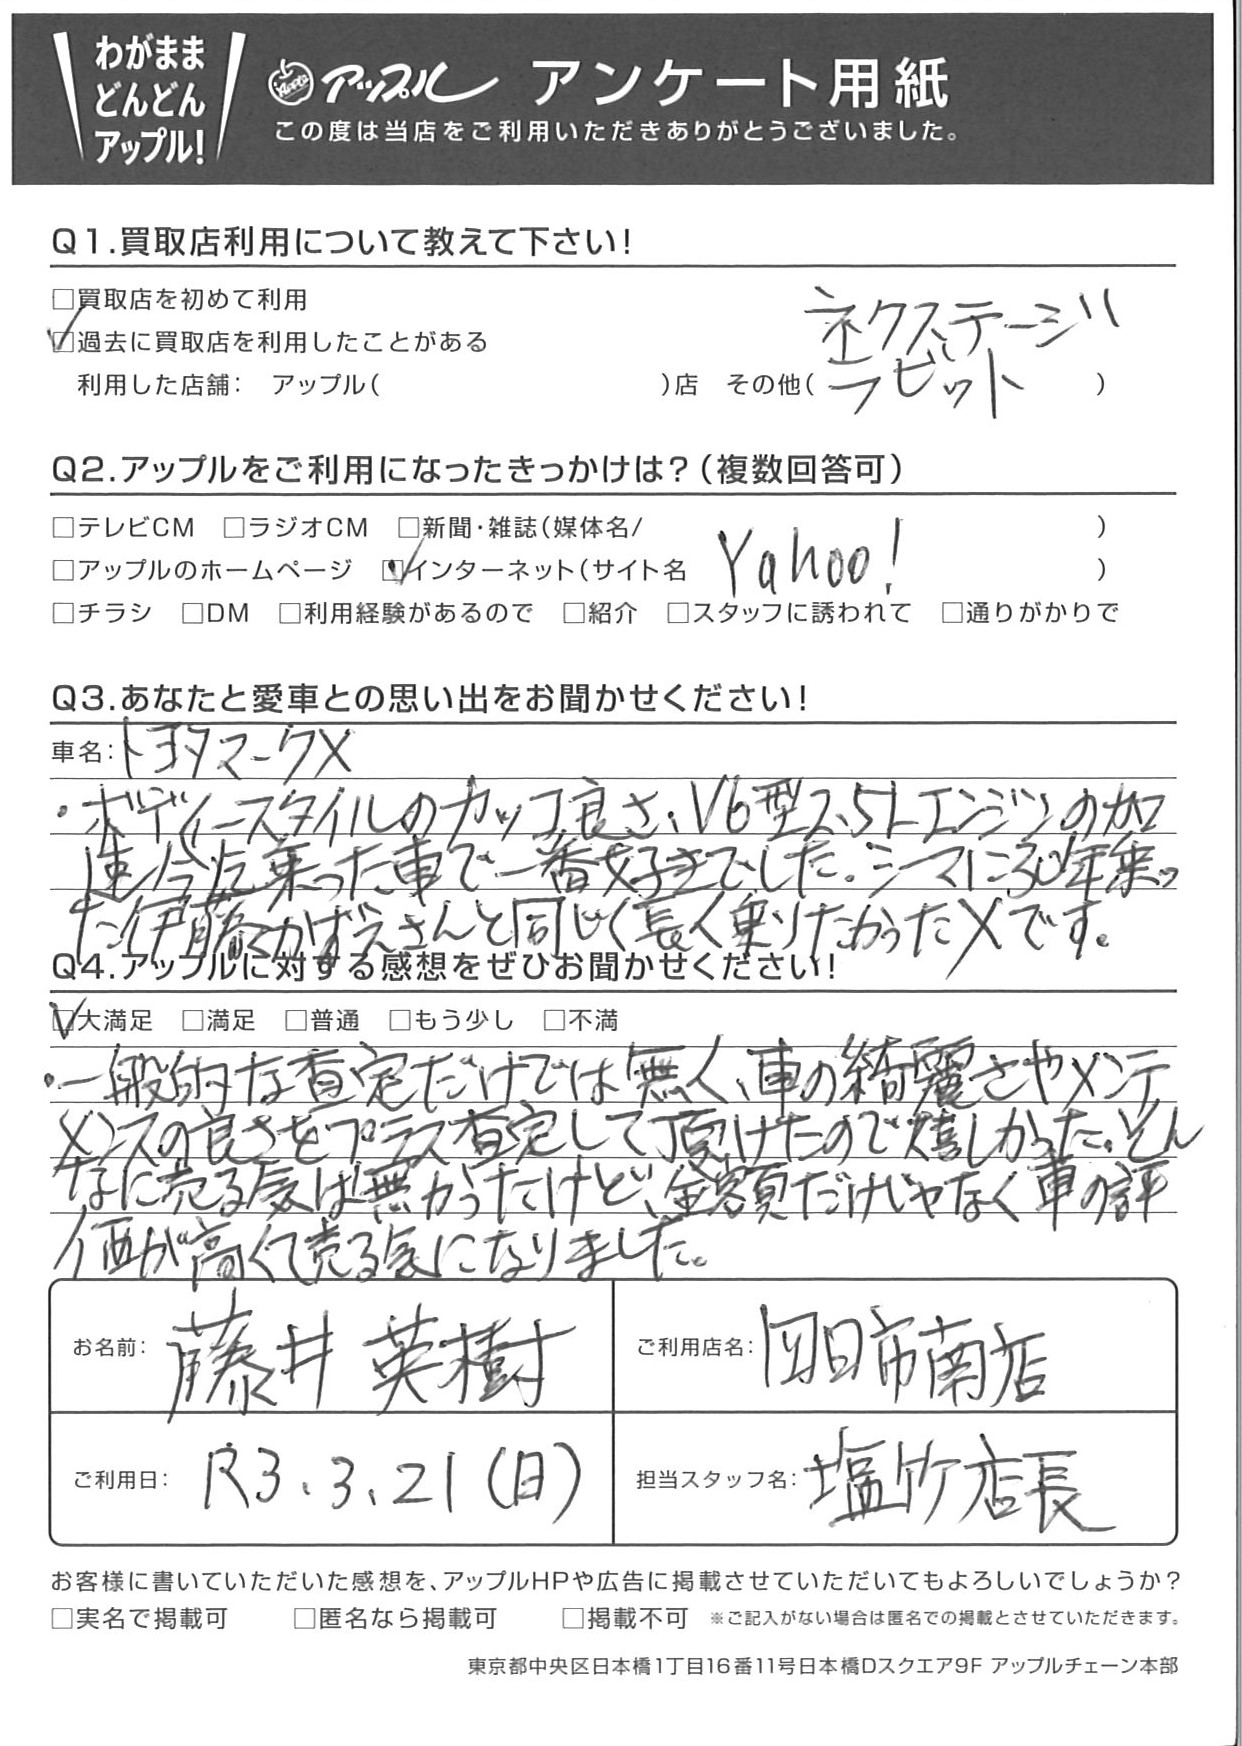 わがまま
どんどん
アップル!
アップル アンケート用紙
この度は当店をご利用いただきありがとうございました。
Q1.買取店利用について教えて下さい!
□買取店を初めて利用
☑過去に買取店を利用したことがある
ネクステージ
利用した店舗: アップル( )店 その他( ラビット )
Q2.アップルをご利用になったきっかけは?(複数回答可)
□テレビCM □ラジオCM □新聞・雑誌(媒体名/ )
□アップルのホームページ ☑インターネット(サイト名 Yahoo! )
□チラシ □DM □利用経験があるので □紹介 □スタッフに誘われて □通りがかりで
Q3.あなたと愛車との思い出をお聞かせください!
車名:トヨタマークX
・ボディースタイルのカッコ良さ、V6型2.5Lエンジンの加
速、今迄乗った車で一番好きでした。シーマに30年乗っ
た伊藤かずえさんと同じく長く乗りたかったXです。
Q4.アップルに対する感想をぜひお聞かせください!
☑大満足 □満足 □普通 □もう少し □不満
・一般的な査定だけでは無く、車の綺麗さやメンテ
メンスの良さをプラス査定して頂けたので嬉しかった。そん
なに売る気は無かったけど、金額だけじゃなく車の評
価が高くて売る気になりました。
お名前: 藤井 英樹 ご利用店名: 四日市南店
ご利用日: R3.3.21(日) 担当スタッフ名: 塩竹店長
お客様に書いていただいた感想を、アップルHPや広告に掲載させていただいてもよろしいでしょうか?
□実名で掲載可 □匿名なら掲載可 □掲載不可 ※ご記入がない場合は匿名での掲載とさせていただきます。
東京都中央区日本橋1丁目16番11号日本橋Dスクエア9F アップルチェーン本部